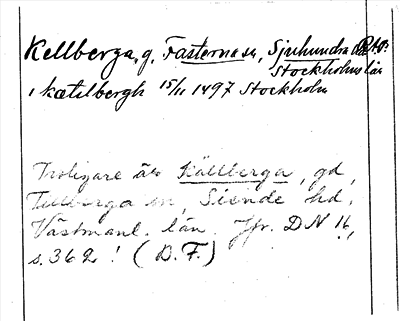 Kellberga, g. Fasterna sn, Sjuhundra
Stockholms län
i kætilbergh 15/11 1497 Stockholm
Troligare är Källberga, gd,
Tillberga sn, Siende hd,
Västmanl. län. Jfr. DN 16,
s. 362! (D. F.)